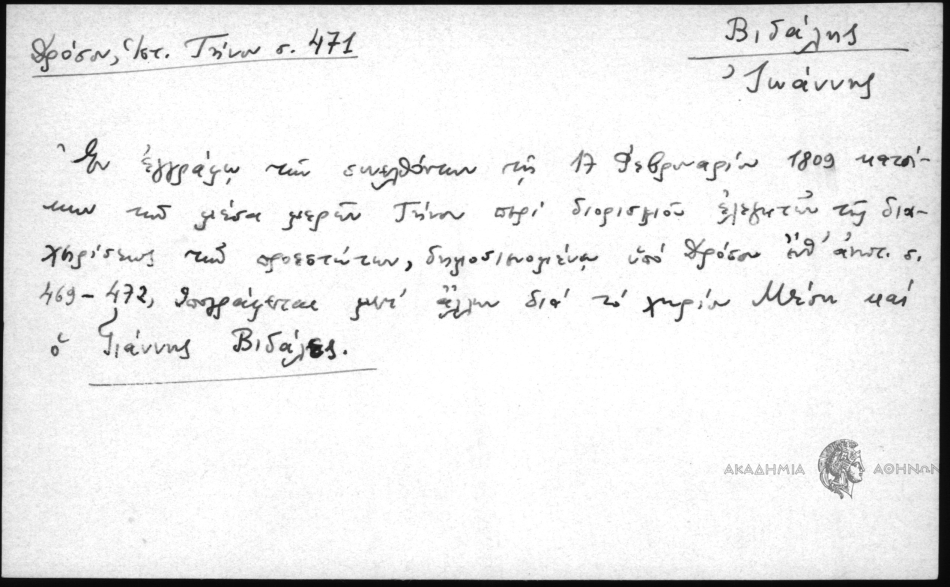 Δρόσου, Ἱστ. Τήνου σ. 471
Βιδάλης
Ἰωάννης
Ἐν ἐγγράφῳ τῶν συνελθόντων τῇ 17 Φεβρουαρίου 1809 κατοί-
κων τῶν μέσα μερῶν Τήνου περὶ διορισμοῦ ἐλεγκτῶν τῆς δια-
χειρίσεως τῶν προεστώτων, δημοσιευομένῳ ὑπὸ Δρόσου ἔνθ' ἀνωτ. σ.
469-472, ὑπογράφεται μετ' ἄλλων διὰ τὸ χωρίον Μέση καὶ
ὁ Γιάννης Βιδάλες.
ΑΚΑΔΗΜΙΑ ΑΘΗΝΩΝ